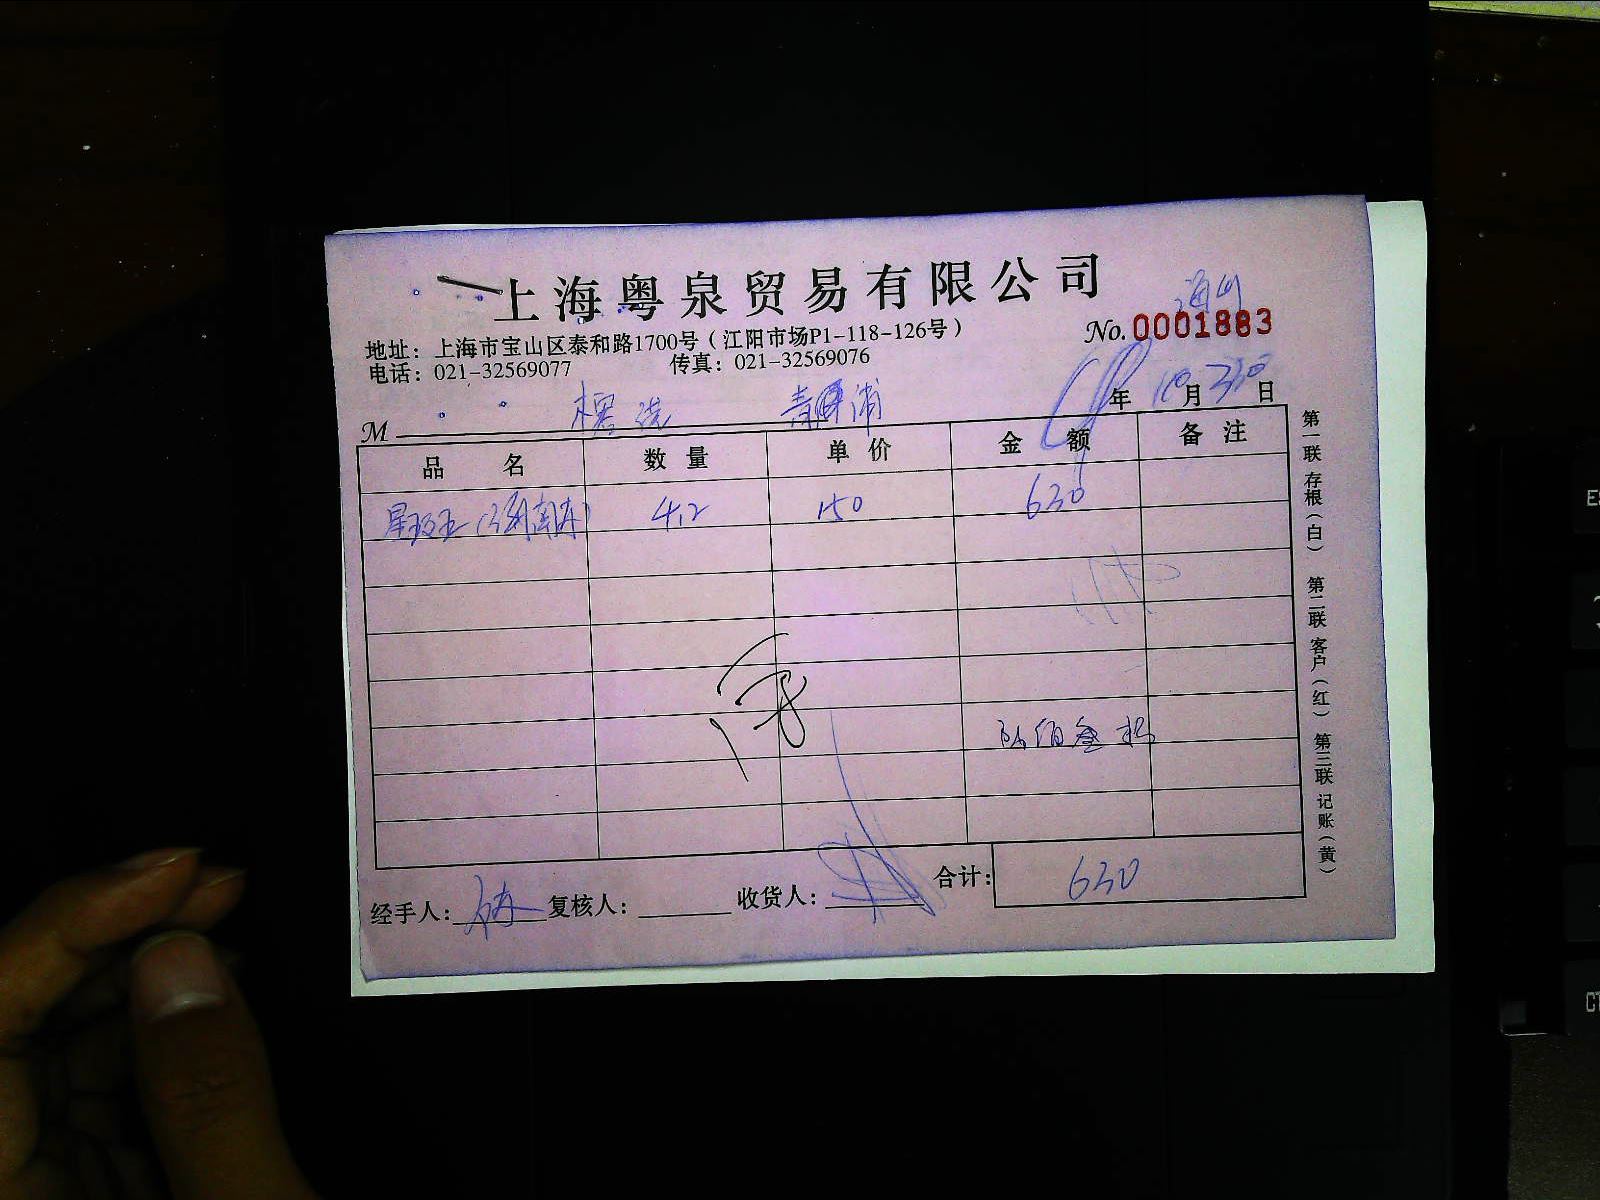 上海粤泉贸易有限公司
No. 0001883
地址：上海市宝山区泰和路1700号（江阳市场P1-118-126号）
电话：021-32569077 传真：021-32569076
年 10 月 日
M 青浦
品名 数量 单价 金额 备注
4.2 150 630
陆佰叁拾
合计： 630
经手人： 复核人： 收货人：
第一联 存根（白） 第二联 客户（红） 第三联 记账（黄）
ES